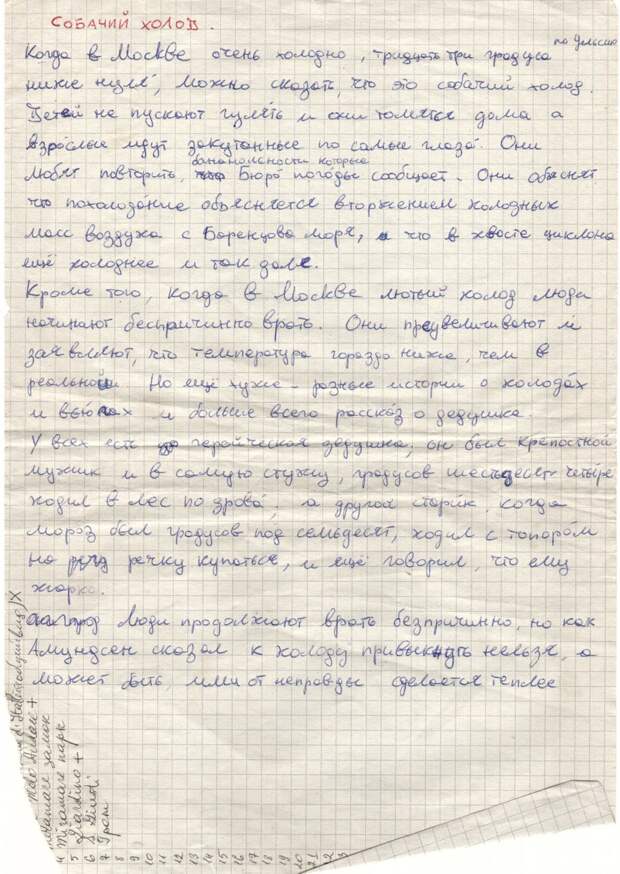 СОБАЧИЙ ХОЛОД.
по Ульсио
Когда в Москве очень холодно, тридцать три градуса
ниже нуля, можно сказать, что это собачий холод.
Детей не пускают гулять и они томятся дома а
взрослые идут закутанные по самые глаза. Они
банальности которые
любят повторить, Бюро погоды сообщает. Они объяснят
что похолодание объясняется вторжением холодных
масс воздуха с Баренцова моря, и что в хвосте циклона
ещё холоднее и так дале.
Кроме того, когда в Москве лютый холод люди
начинают беспричинно врать. Они преувеличивают и
заявляют, что температура гораздо ниже, чем в
реальной Но ещё хуже - разные истории о холодах
и вьюгах и больше всего рассказ о дедушке.
У всех есть геройческая дедушка, он был крепостной
мужик и в самую стужу, градусов шестьдесят четыре
ходил в лес по дрова, а другой старик, когда
мороз был градусов под семьдесят, ходил с топором
на речку купаться, и ещё говорил, что ему
жарко.
люди продолжают врать безпричинно, но как
Амундсен сказал к холоду привыкнуть нельзя, а
может быть ими от неправды сделается теплее
замок
4 Miramare парк
5 Giardino +
6
7 Гром
8
9
10
11
12
13
14
15
16
17
18
19
20
21